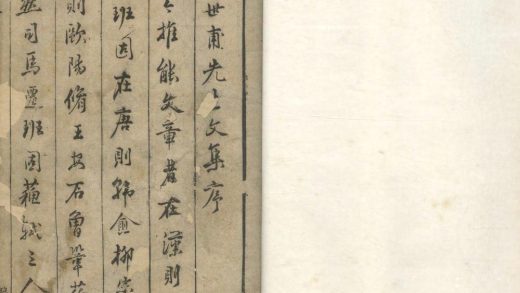 世甫先生文集序
今推能文章者在漢則
班固在唐則韓愈柳宗
則歐陽脩王安石曾鞏
然司馬遷班固蘇軾三人